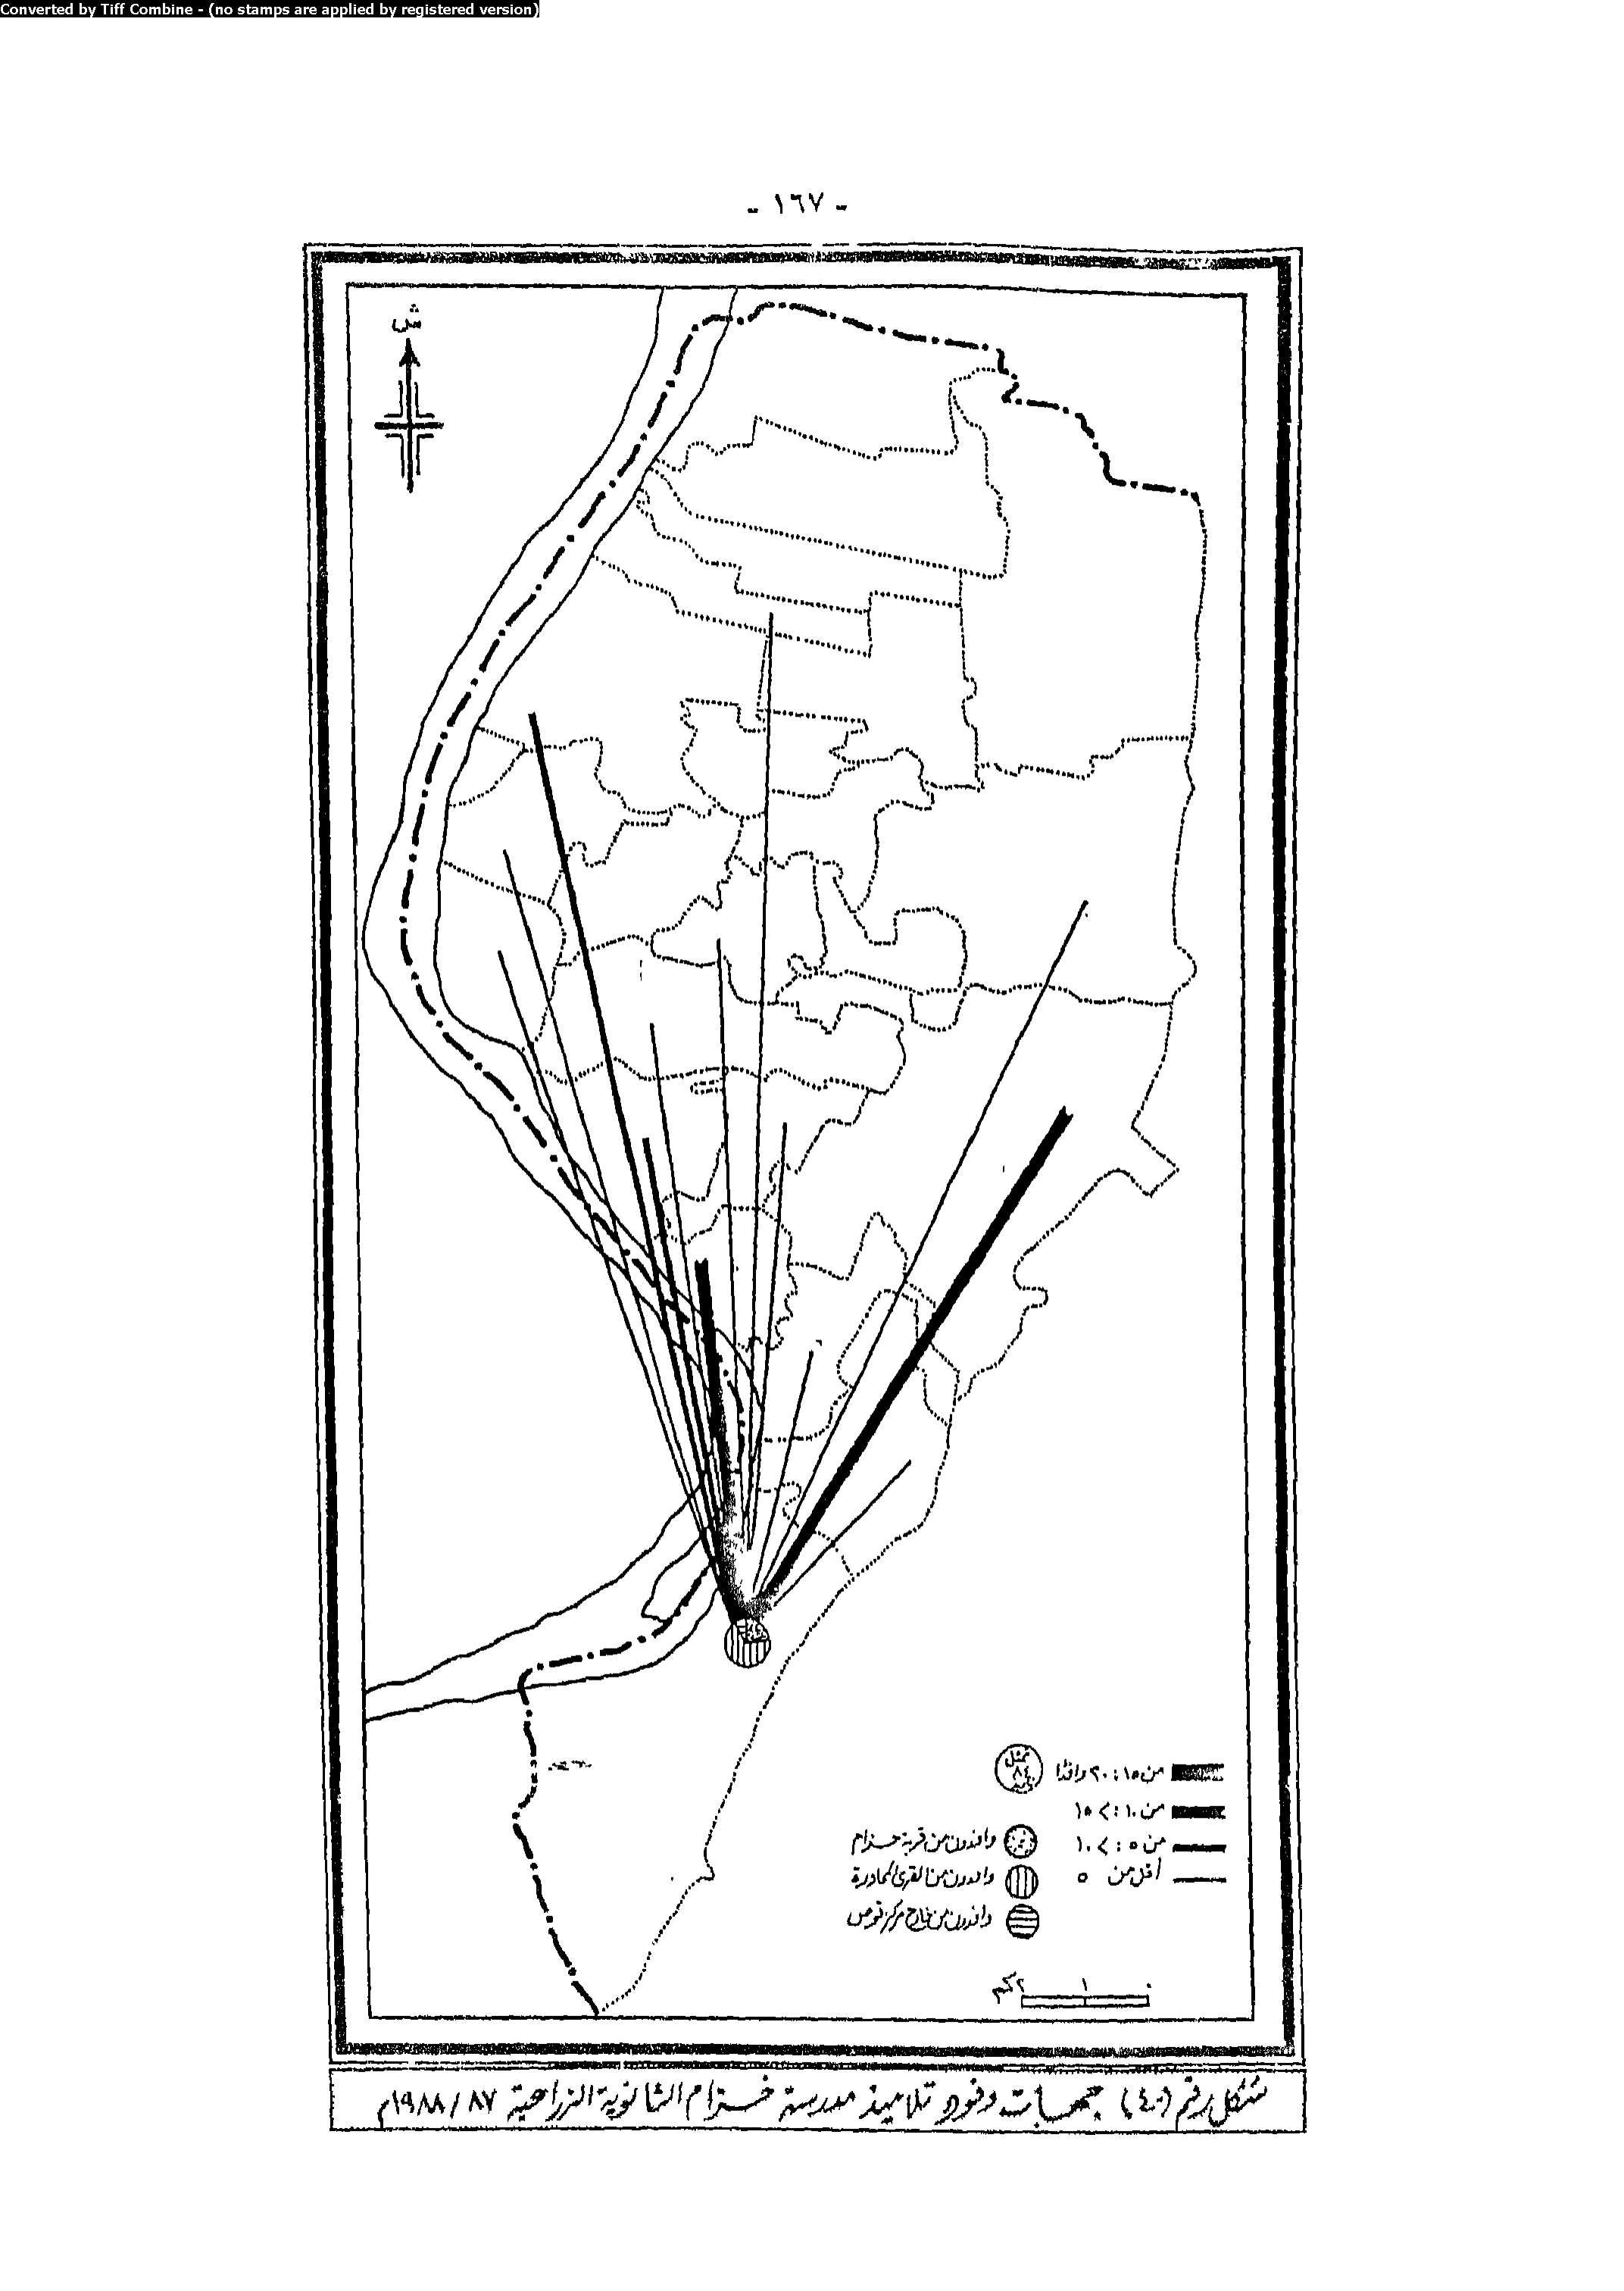 Converted by Tiff Combine - (no stamps are applied by registered version)
- ١٦٧ -
ش
من ١٥ : ٢٠ وافدًا
من ١٠ : > ١٥
من ٥ : > ١٠
أقل من ٥
تمثل ٨٤
وافدون من قرية خزام
وافدون من القرى المجاورة
وافدون من خارج مركز قوص
٠ ١ ٢ كم
شكل رقم (٤٠) جهات وفود تلاميذ مدرسة خزام الثانوية الزراعية ١٩٨٨/٨٧م